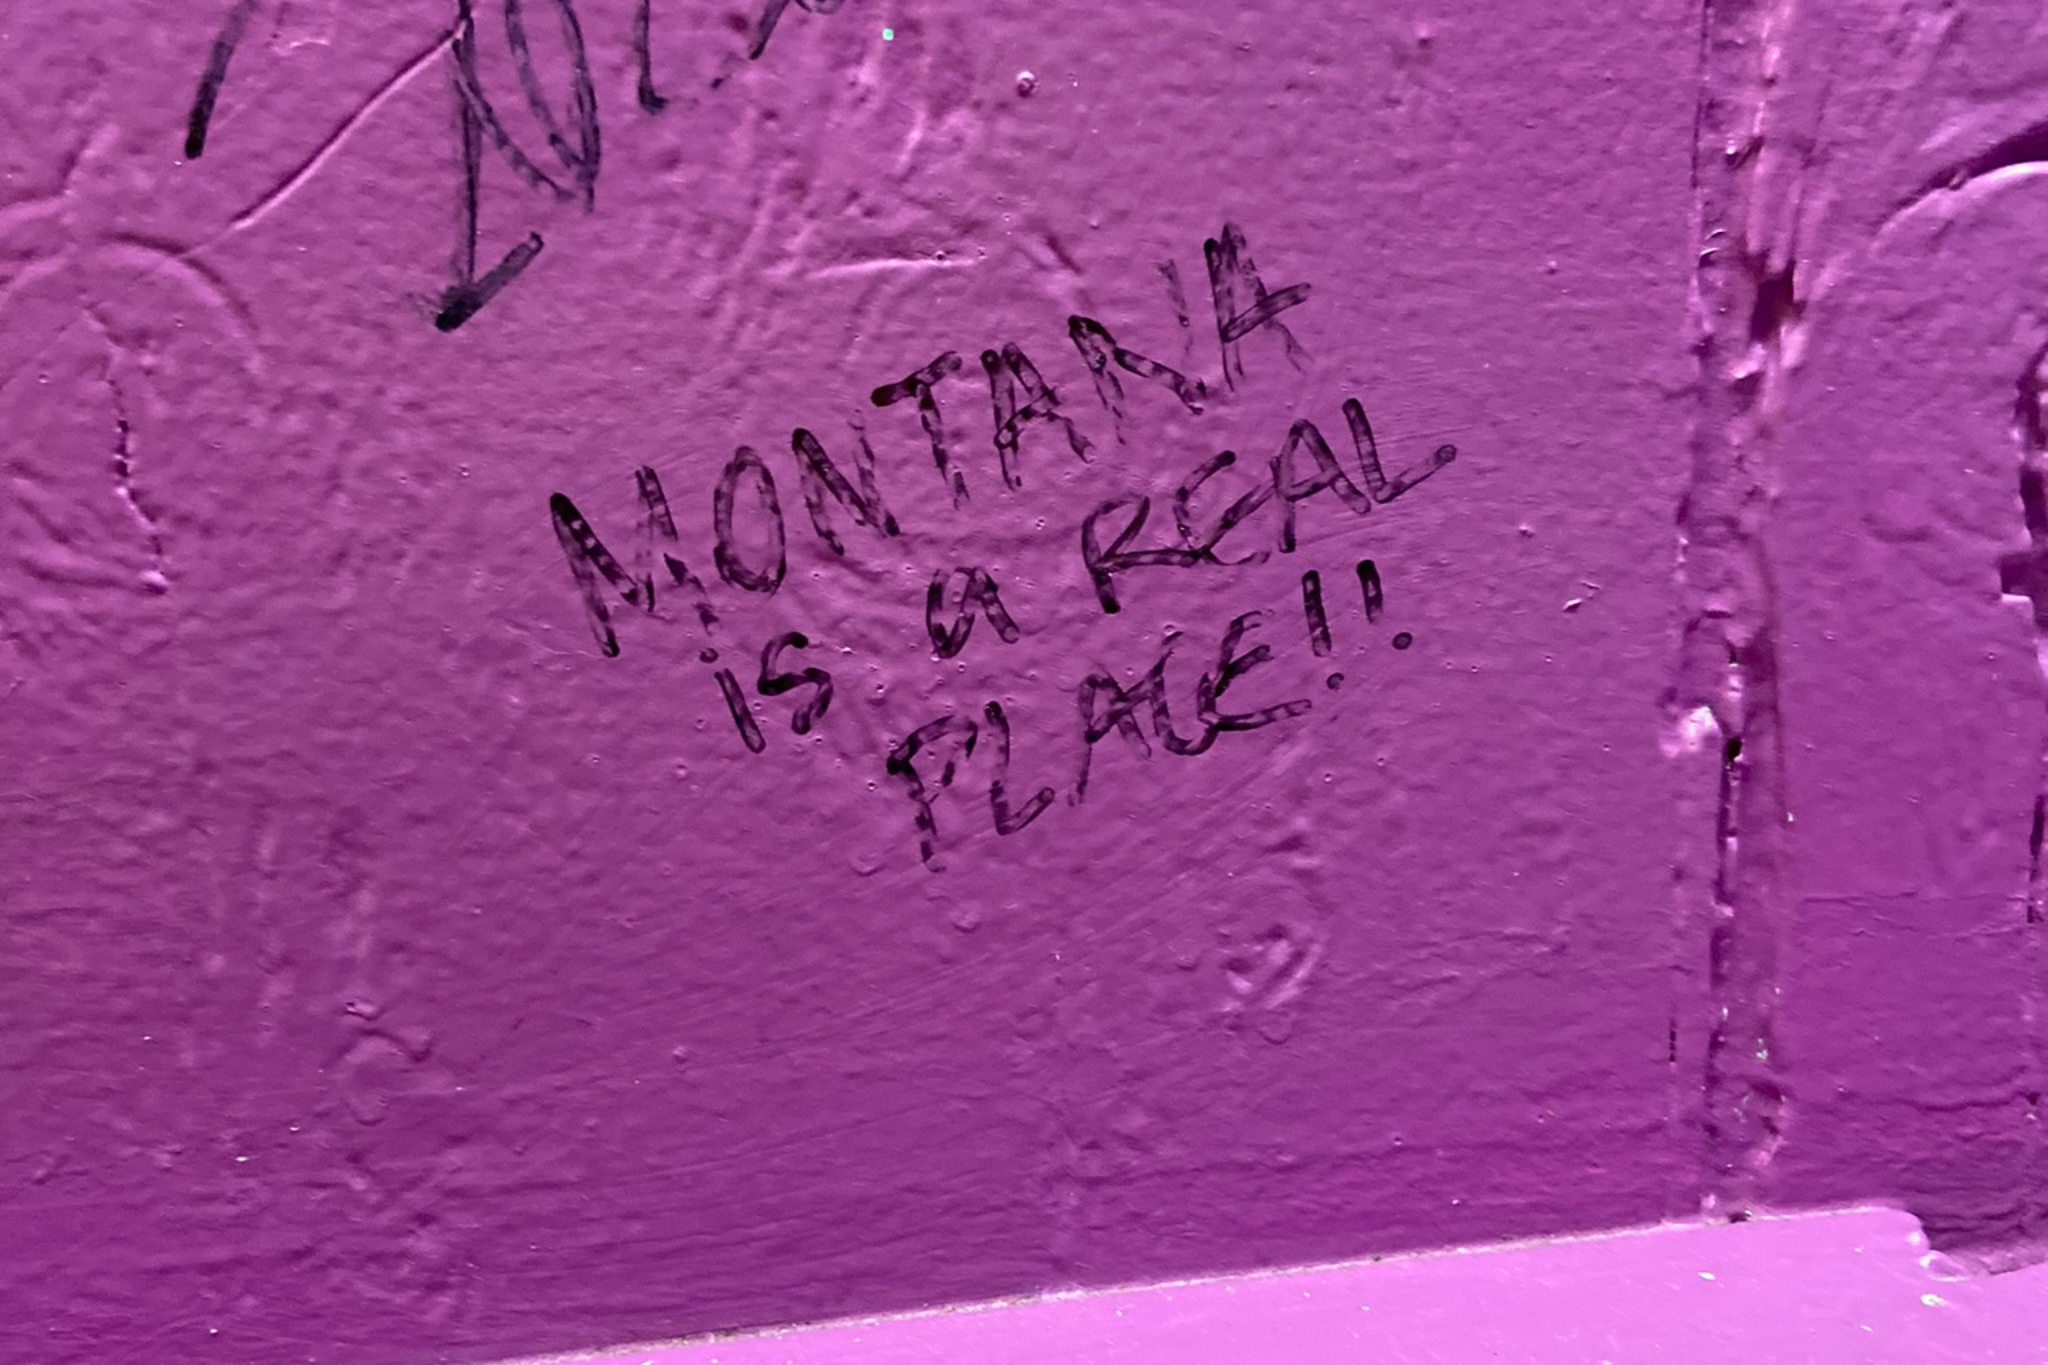 MONTANA
is a REAL
PLACE!!